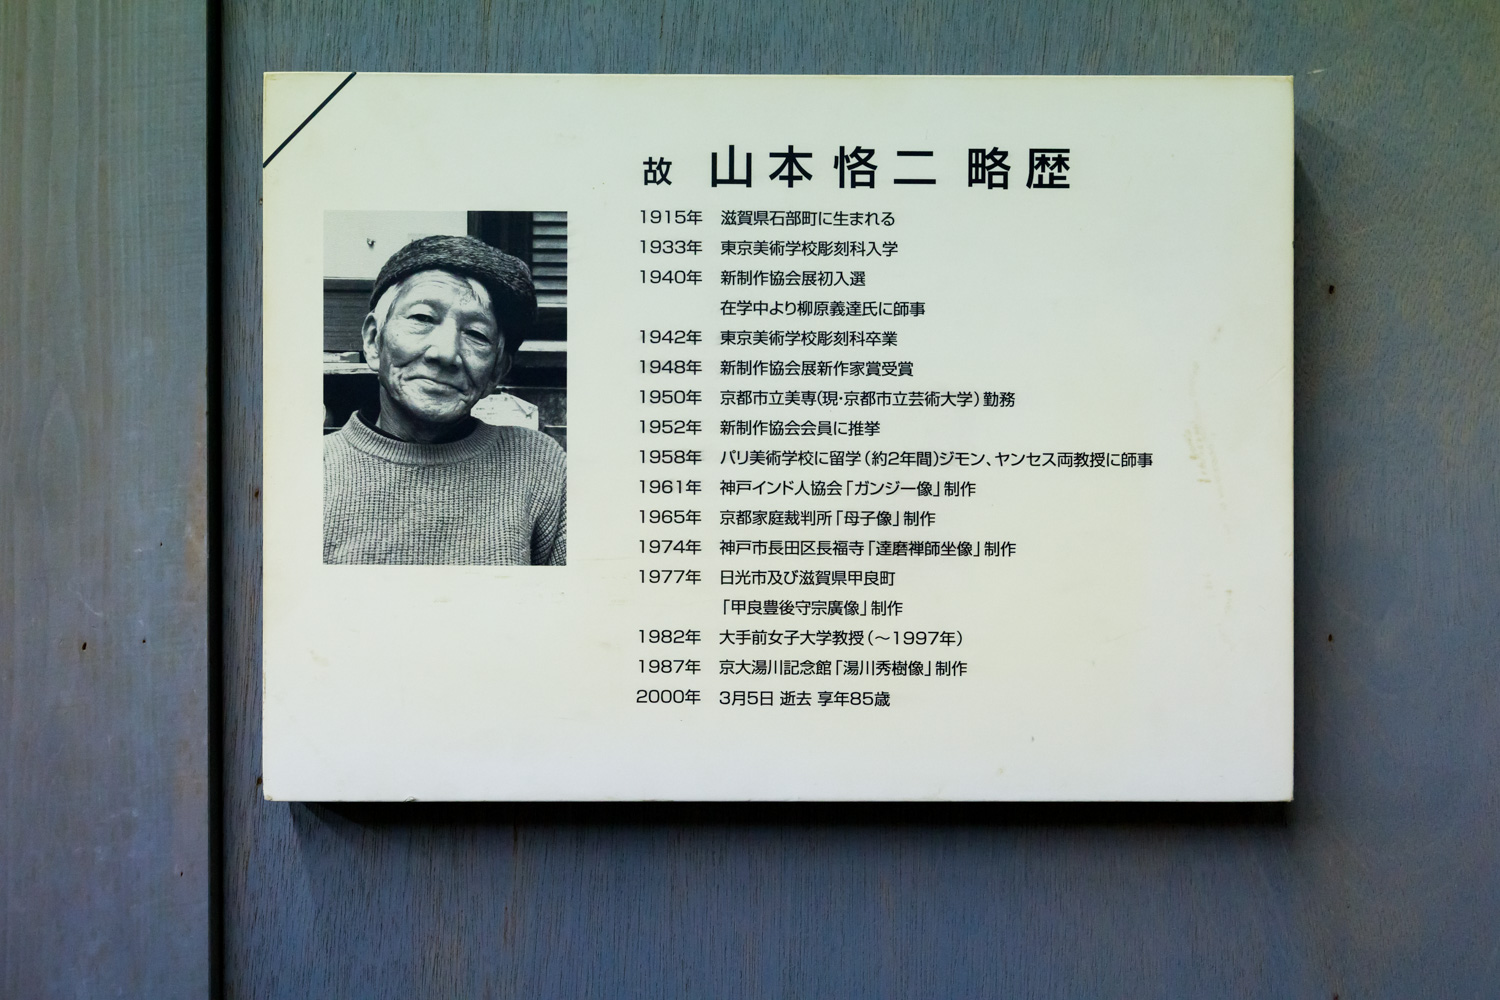 故 山本 恪二 略歴
1915年 滋賀県石部町に生まれる
1933年 東京美術学校彫刻科入学
1940年 新制作協会展初入選
在学中より柳原義達氏に師事
1942年 東京美術学校彫刻科卒業
1948年 新制作協会展新作家賞受賞
1950年 京都市立美専(現・京都市立芸術大学)勤務
1952年 新制作協会会員に推挙
1958年 パリ美術学校に留学(約2年間)ジモン、ヤンセス両教授に師事
1961年 神戸インド人協会「ガンジー像」制作
1965年 京都家庭裁判所「母子像」制作
1974年 神戸市長田区長福寺「達磨禅師坐像」制作
1977年 日光市及び滋賀県甲良町
「甲良豊後守宗廣像」制作
1982年 大手前女子大学教授(〜1997年)
1987年 京大湯川記念館「湯川秀樹像」制作
2000年 3月5日 逝去 享年85歳